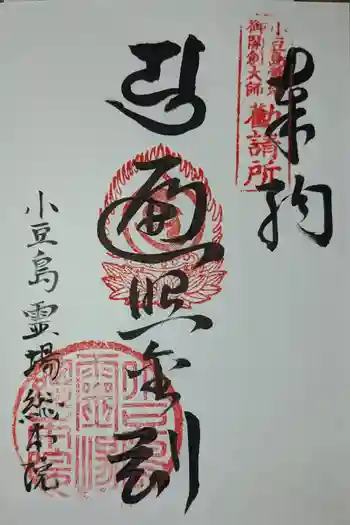 奉納
小豆島霊場
御開創大師
勸請所
遍照金剛
小豆島霊場総本院